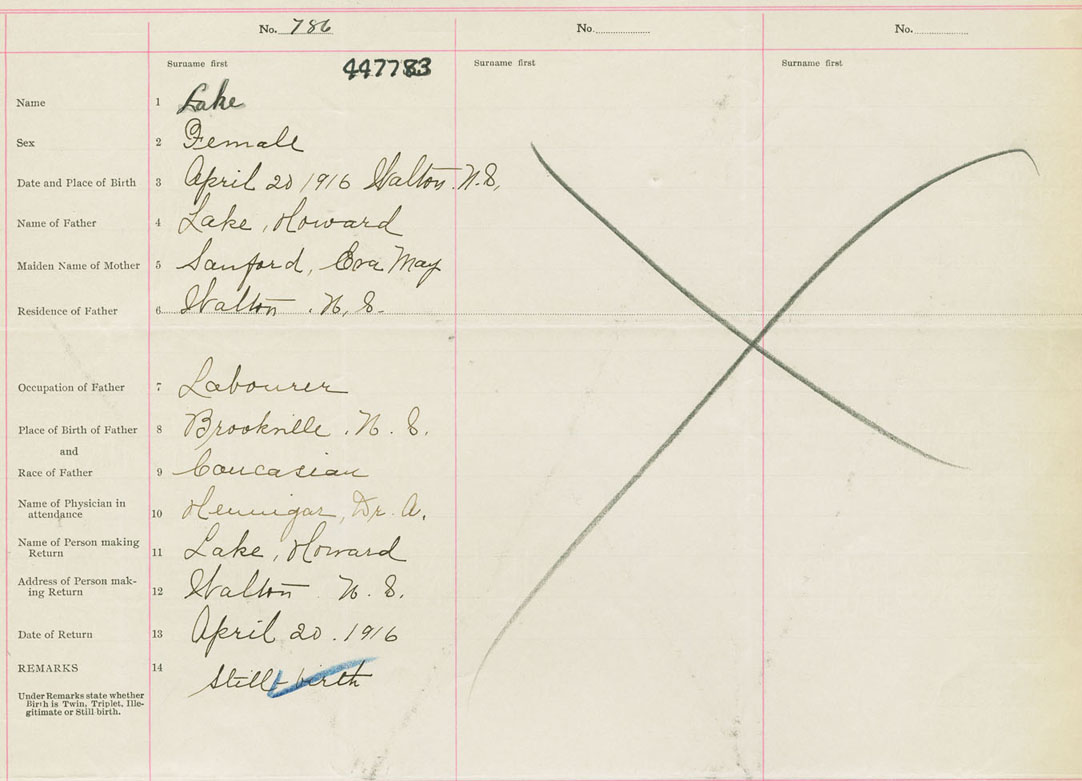 No. 786
No.
No.
Surname first
447783
Surname first
Surname first
Name 1 Lake
Sex 2 Female
Date and Place of Birth 3 April 20 1916 Walton. N.S.
Name of Father 4 Lake, Howard
Maiden Name of Mother 5 Sanford, Eva May
Residence of Father 6 Walton. N.S.
Occupation of Father 7 Labourer
Place of Birth of Father 8 Brookville. N.S.
and
Race of Father 9 Caucasian
Name of Physician in
attendance 10 Hennigar, Dr. A.
Name of Person making
Return 11 Lake, Howard
Address of Person mak-
ing Return 12 Walton N.S.
Date of Return 13 April 20. 1916
REMARKS 14 Still birth
Under Remarks state whether
Birth is Twin, Triplet, Ille-
gitimate or Still birth.